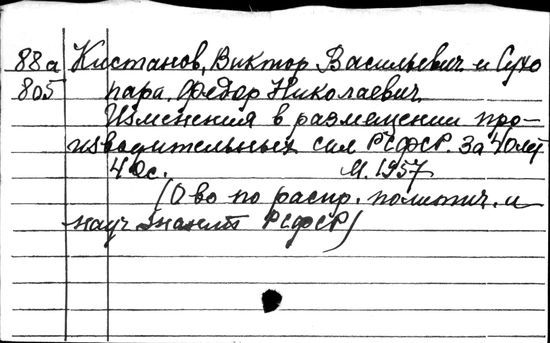 88а Кистанов, Виктор Васильевич и Сухо
805 пара, Федор Николаевич
Изменения в размещении про-
изводительных сил РСФСР за 40 лет
40с. М. 1957
(О-во по распр. политич. и
науч. знаний РСФСР)